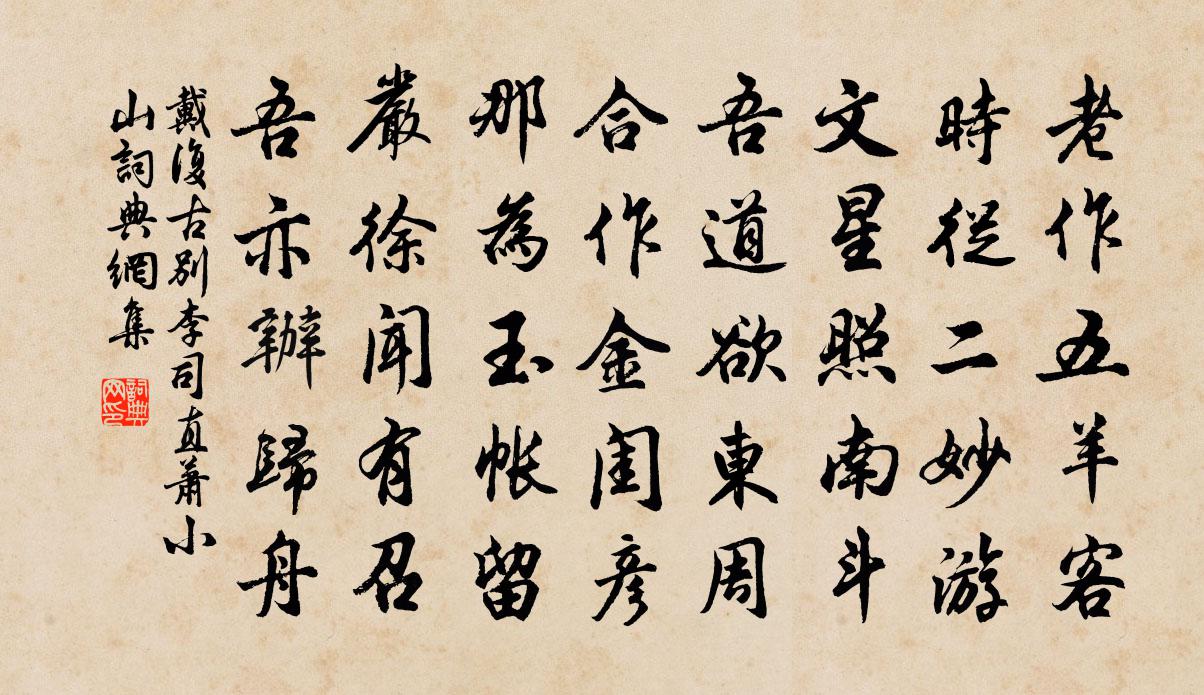 老作五羊客
時從二妙游
文星照南斗
吾道欲東周
合作金閨彦
那為玉帳留
嚴徐聞有召
吾亦辦歸舟
戴復古別李司直蕭小
山詞典網集
詞典网印